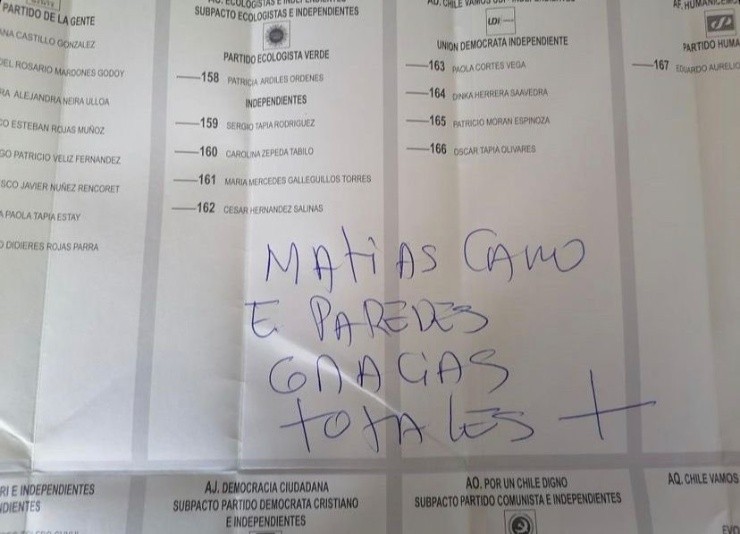 PARTIDO DE LA GENTE
ANA CASTILLO GONZALEZ
DEL ROSARIO MARDONES GODOY
RA ALEJANDRA NEIRA ULLOA
CO ESTEBAN ROJAS MUÑOZ
GO PATRICIO VELIZ FERNANDEZ
SCO JAVIER NUÑEZ RENCORET
A PAOLA TAPIA ESTAY
O DIDIERES ROJAS PARRA
SUBPACTO ECOLOGISTAS E INDEPENDIENTES
PARTIDO ECOLOGISTA VERDE
158 PATRICIA ARDILES ORDENES
INDEPENDIENTES
159 SERGIO TAPIA RODRIGUEZ
160 CAROLINA ZEPEDA TABILO
161 MARIA MERCEDES GALLEGUILLOS TORRES
162 CESAR HERNANDEZ SALINAS
UDI
UNION DEMOCRATA INDEPENDIENTE
163 PAOLA CORTES VEGA
164 DINKA HERRERA SAAVEDRA
165 PATRICIO MORAN ESPINOZA
166 OSCAR TAPIA OLIVARES
PARTIDO HUMA
167 EDUARDO AURELIO
MATIAS CANO
E PAREDES
GRACIAS
TOTALES +
RI E INDEPENDIENTES
NDIENTES
AJ. DEMOCRACIA CIUDADANA
SUBPACTO PARTIDO DEMOCRATA CRISTIANO
E INDEPENDIENTES
AO. POR UN CHILE DIGNO
SUBPACTO PARTIDO COMUNISTA E INDEPENDIENTES
AQ. CHILE VAMOS
EVO